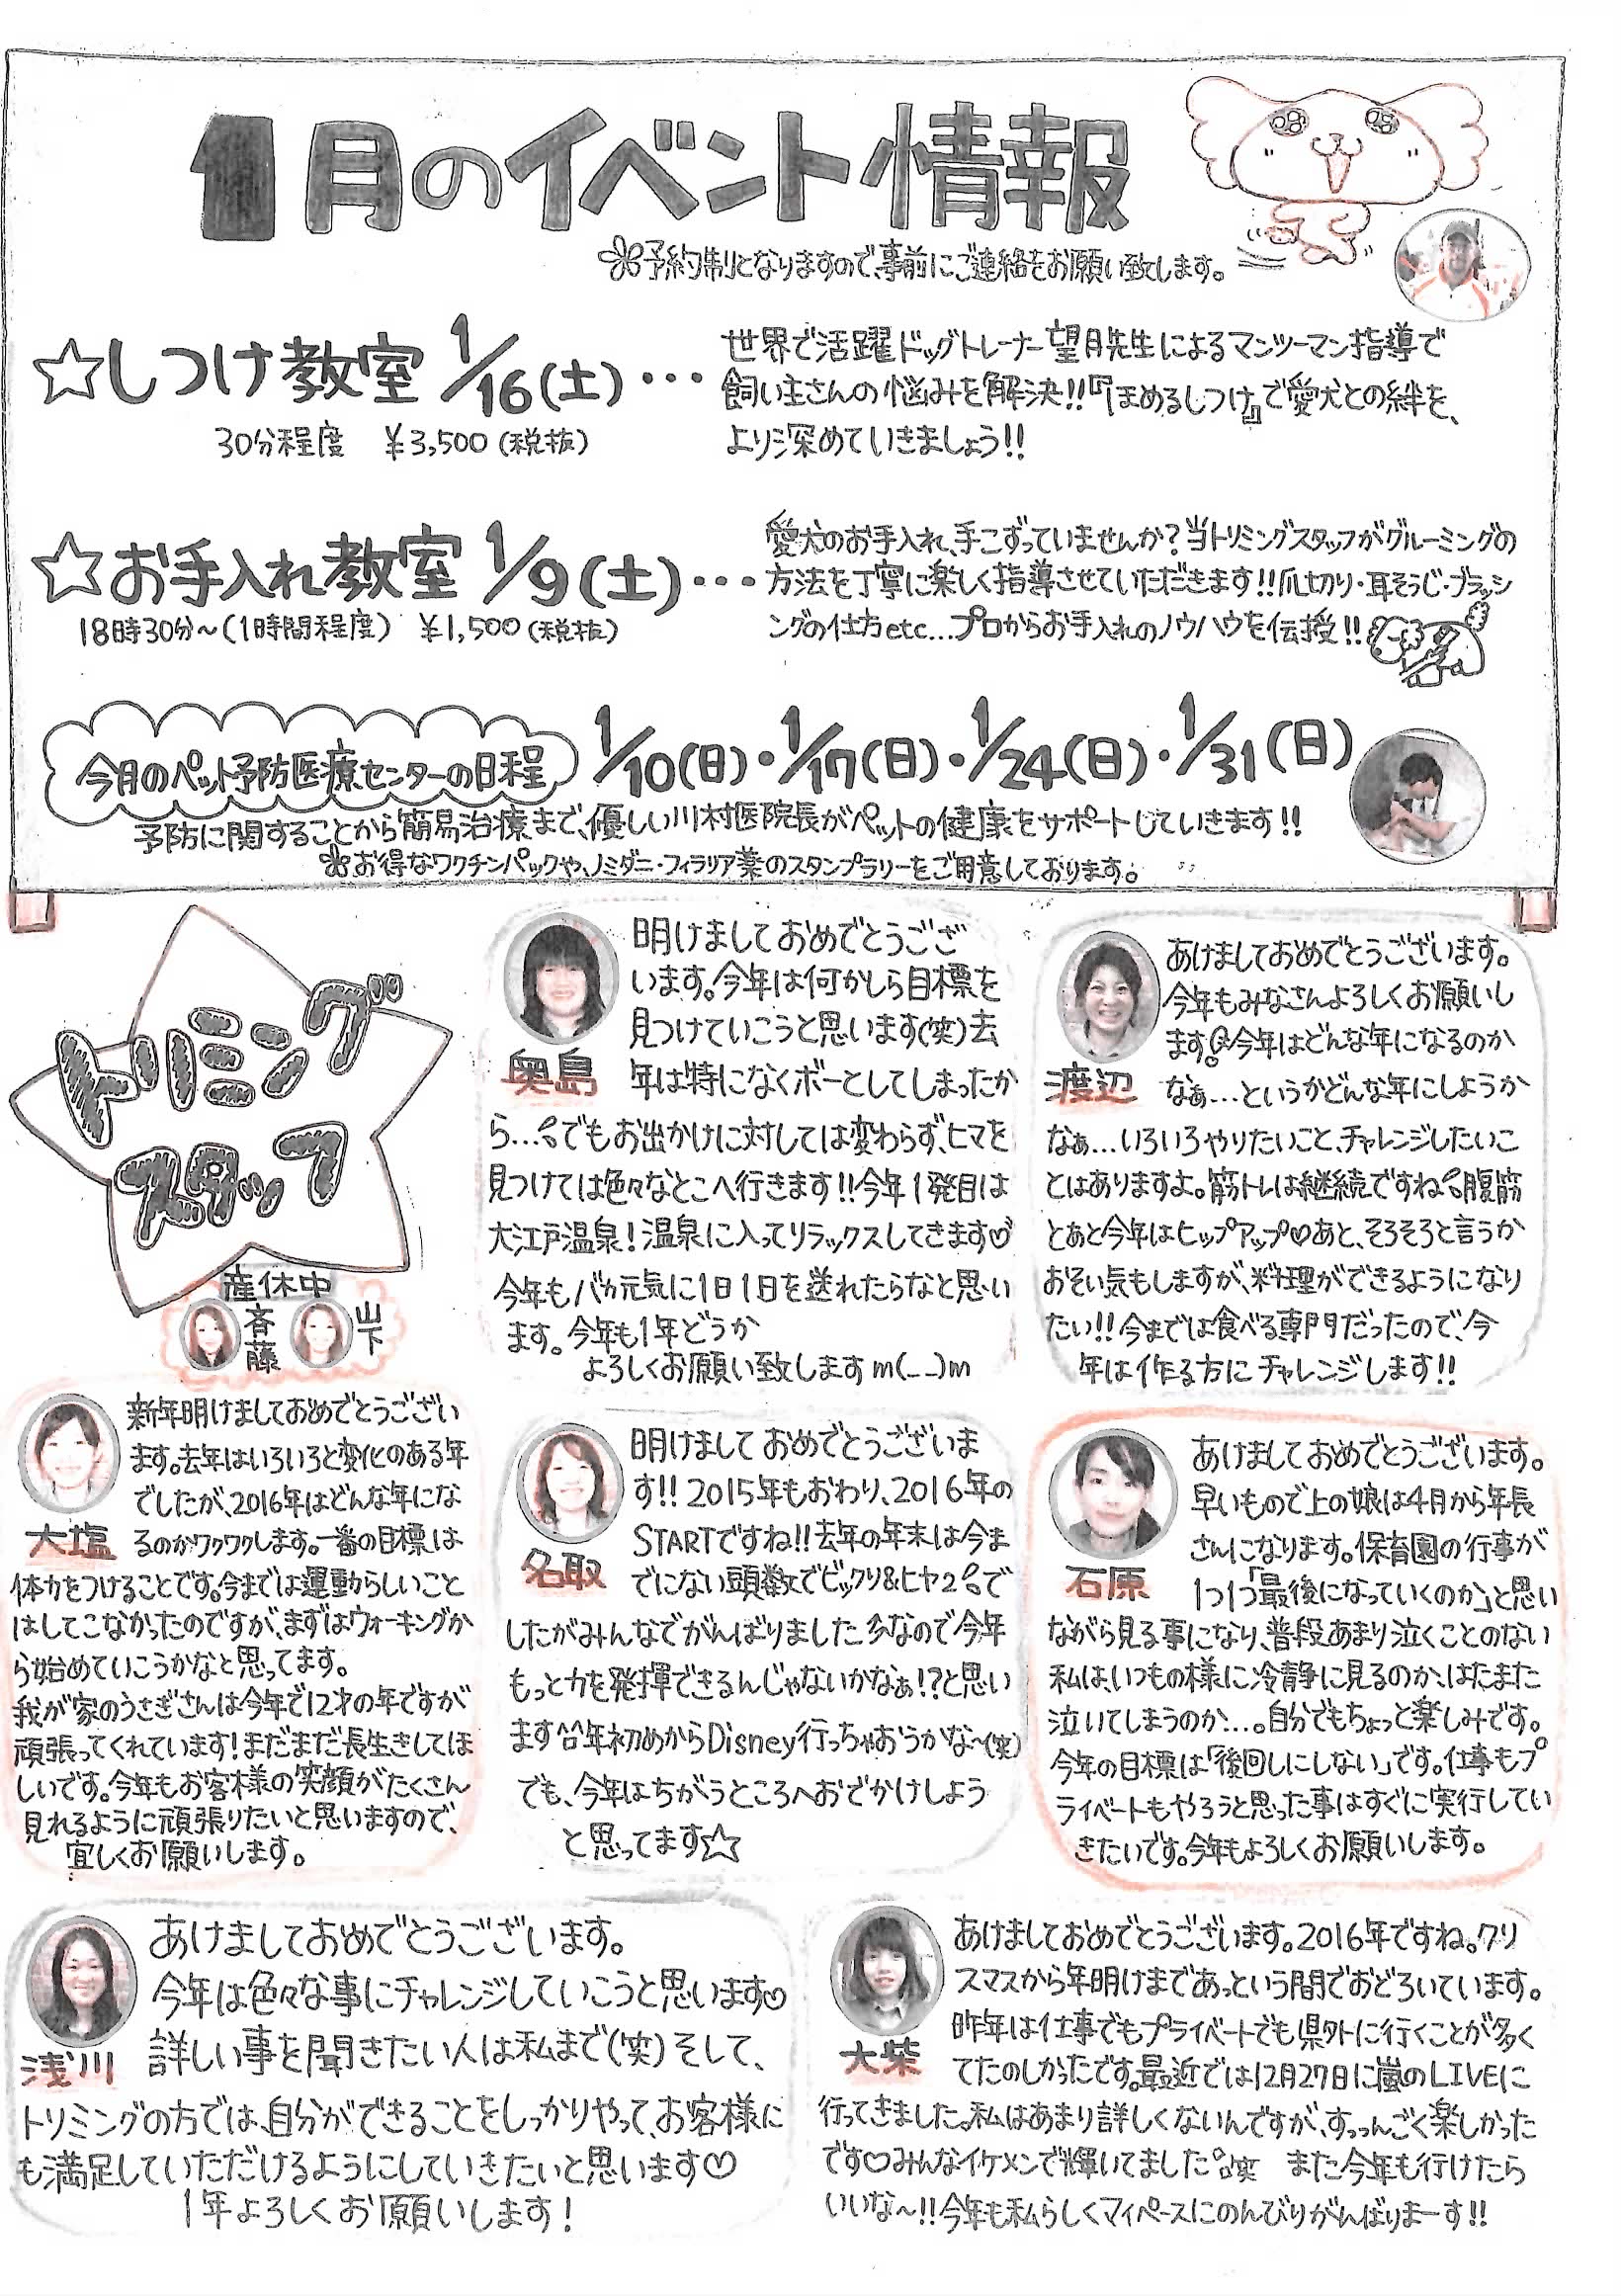 1月のイベント情報
予約制となりますので、事前にご連絡をお願い致します。
☆しつけ教室 1/16(土)・・・
30分程度 ¥3,500(税抜)
世界で活躍ドッグトレーナー望月先生によるマンツーマン指導で
飼い主さんの悩みを解決!!『ほめるしつけ』で愛犬との絆を、
より深めていきましょう!!
☆お手入れ教室 1/9(土)・・・
18時30分〜(1時間程度) ¥1,500(税抜)
愛犬のお手入れ、手こずっていませんか?当トリミングスタッフがグルーミングの
方法を丁寧に楽しく指導させていただきます!!爪切り・耳そうじ・ブラッシ
ングの仕方etc...プロからお手入れのノウハウを伝授!!
今月のペット予防医療センターの日程
1/10(日)・1/17(日)・1/24(日)・1/31(日)
予防に関することから簡易治療まで、優しい川村医院長がペットの健康をサポートしていきます!!
お得なワクチンパックや、ノミダニ・フィラリア薬のスタンプラリーをご用意しております。
トリミング
スタッフ
産休中
斉藤
山下
奥島
明けましておめでとうござ
います。今年は何かしら目標を
見つけていこうと思います(笑)去
年は特になくボーとしてしまったか
ら...でもお出かけに対しては変わらず、ヒマを
見つけては色々なとこへ行きます!!今年1発目は
大江戸温泉!温泉に入ってリラックスしてきます♡
今年もバカ元気に1日1日を送れたらなと思い
ます。今年も1年どうか
よろしくお願い致しますm(_ _)m
渡辺
あけましておめでとうございます。
今年もみなさんよろしくお願いし
ます。今年はどんな年になるのか
なぁ...というかどんな年にしようか
なぁ...いろいろやりたいこと、チャレンジしたいこ
とはありますよ。筋トレは継続ですね。腹筋
とあと今年はヒップアップ♡あと、そろそろと言うか
おそい気もしますが、料理ができるようになり
たい!!今までは食べる専門だったので、今
年は作る方にチャレンジします!!
大塩
新年明けましておめでとうござい
ます。去年はいろいろと変化のある年
でしたが、2016年はどんな年にな
るのかワクワクします。一番の目標は
体力をつけることです。今までは運動らしいこと
はしてこなかったのですが、まずはウォーキングか
ら始めていこうかなと思ってます。
我が家のうさぎさんは今年で12才の年ですが
頑張ってくれています!まだまだ長生きしてほ
しいです。今年もお客様の笑顔がたくさん
見れるように頑張りたいと思いますので、
宜しくお願いします。
名取
明けましておめでとうございま
す!!2015年もおわり、2016年の
STARTですね!!去年の年末は今ま
でにない頭数でビックリ&ヒヤ2で
したがみんなでがんばりましたなので今年
もっと力を発揮できるんじゃないかなぁ!?と思い
ます^^年初めからDisney行っちゃおうかな〜(笑)
でも、今年はちがうところへおでかけしよう
と思ってます☆
石原
あけましておめでとうございます。
早いもので上の娘は4月から年長
さんになります。保育園の行事が
1つ1つ「最後になっていくのか」と思い
ながら見る事になり、普段あまり泣くことのない
私は、いつもの様に冷静に見るのか、はたまた
泣いてしまうのか...。自分でもちょっと楽しみです。
今年の目標は「後回しにしない」です。仕事もプ
ライベートもやろうと思った事はすぐに実行してい
きたいです。今年もよろしくお願いします。
浅川
あけましておめでとうございます。
今年は色々な事にチャレンジしていこうと思います♡
詳しい事を聞きたい人は私まで(笑)そして、
トリミングの方では、自分ができることをしっかりやって、お客様に
も満足していただけるようにしていきたいと思います♡
1年よろしくお願いします!
大柴
あけましておめでとうございます。2016年ですね。クリ
スマスから年明けまであっという間でおどろいています。
昨年は仕事でもプライベートでも県外に行くことが多く
てたのしかったです。最近では12月27日に嵐のLIVEに
行ってきました。私はあまり詳しくないんですが、すっっんごく楽しかった
です♡みんなイケメンで輝いてました。笑 また今年も行けたら
いいな〜!!今年も私らしくマイペースにのんびりがんばりまーす!!